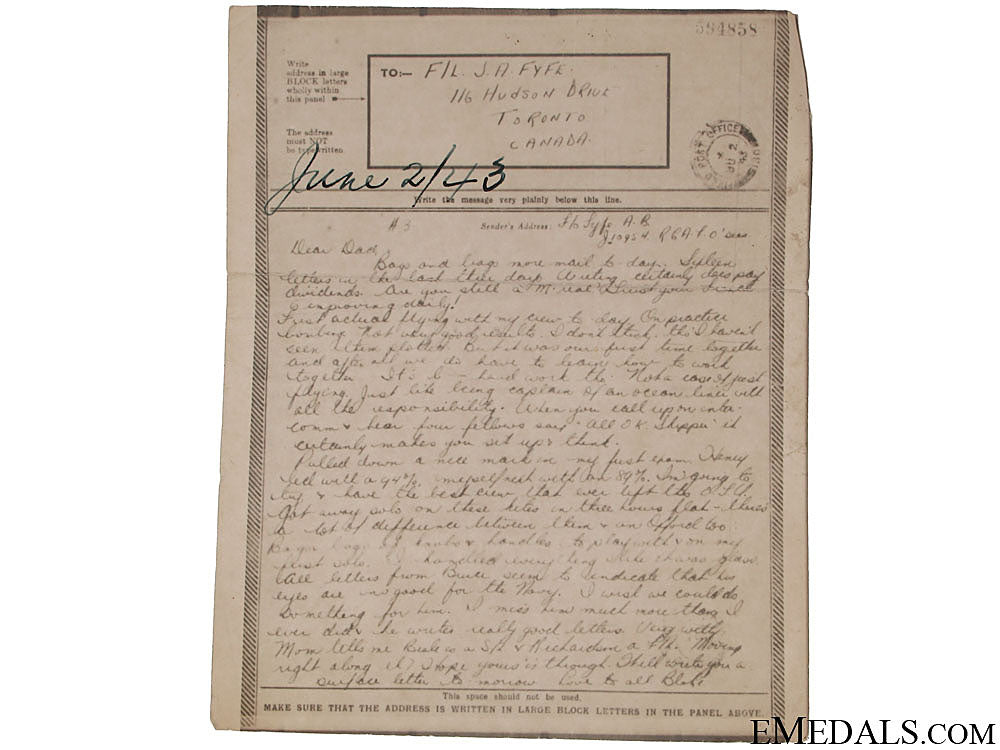 594858
Write
address in large
BLOCK letters
wholly within
this panel
TO:—
F/L. J. A. FYFE.
116 HUDSON DRIVE
TORONTO
CANADA.
The address
must NOT
be typewritten.
POST OFFICE
JU 2
43
June 2/43
Write the message very plainly below this line.
#3
Sender's Address:
Fyfe A. B.
J10954 R C A F O'seas
Dear Dad,
Bags and bags more mail to day.
letters in the last three days Writing certainly does pay
dividends. Are you still in M-real? Trust your
is improving daily!
First actual flying with my crew to day. On practice
bombing. Not very good results I don't think, tho' I haven't
seen them plotted. But it was our first time together
and after all we do have to learn how to work
together. It's hard work tho. Not a case of just
flying. Just like being captain of an ocean liner with
all the responsibility. When you call up on inter-
comm & hear four fellows say "All O.K. Skipper" it
certainly makes you sit up & think.
Pulled down a nice mark in my first exam. Henry
led with a 94%, myself next with an 89%. I'm going to
try & have the best crew that ever left this O.T.U.
Got away solo on these kites in three hours flat - there's
a lot of difference between them & an Oxford too.
Bags & bags of knobs & handles to play with & on my
first solo. I handled everything like it was glass.
All letters from Bruce seem to indicate that his
eyes are no good for the Navy. I wish we could do
something for him. I miss him much more than I
ever did & he writes really good letters. Very witty
Mom tells me is a S/L & Richardson a F/L. Moving
right along eh? I hope yours is through. I'll write you a
surface letter to-morrow Love to all Blake
This space should not be used.
MAKE SURE THAT THE ADDRESS IS WRITTEN IN LARGE BLOCK LETTERS IN THE PANEL ABOVE.
EMEDALS.COM